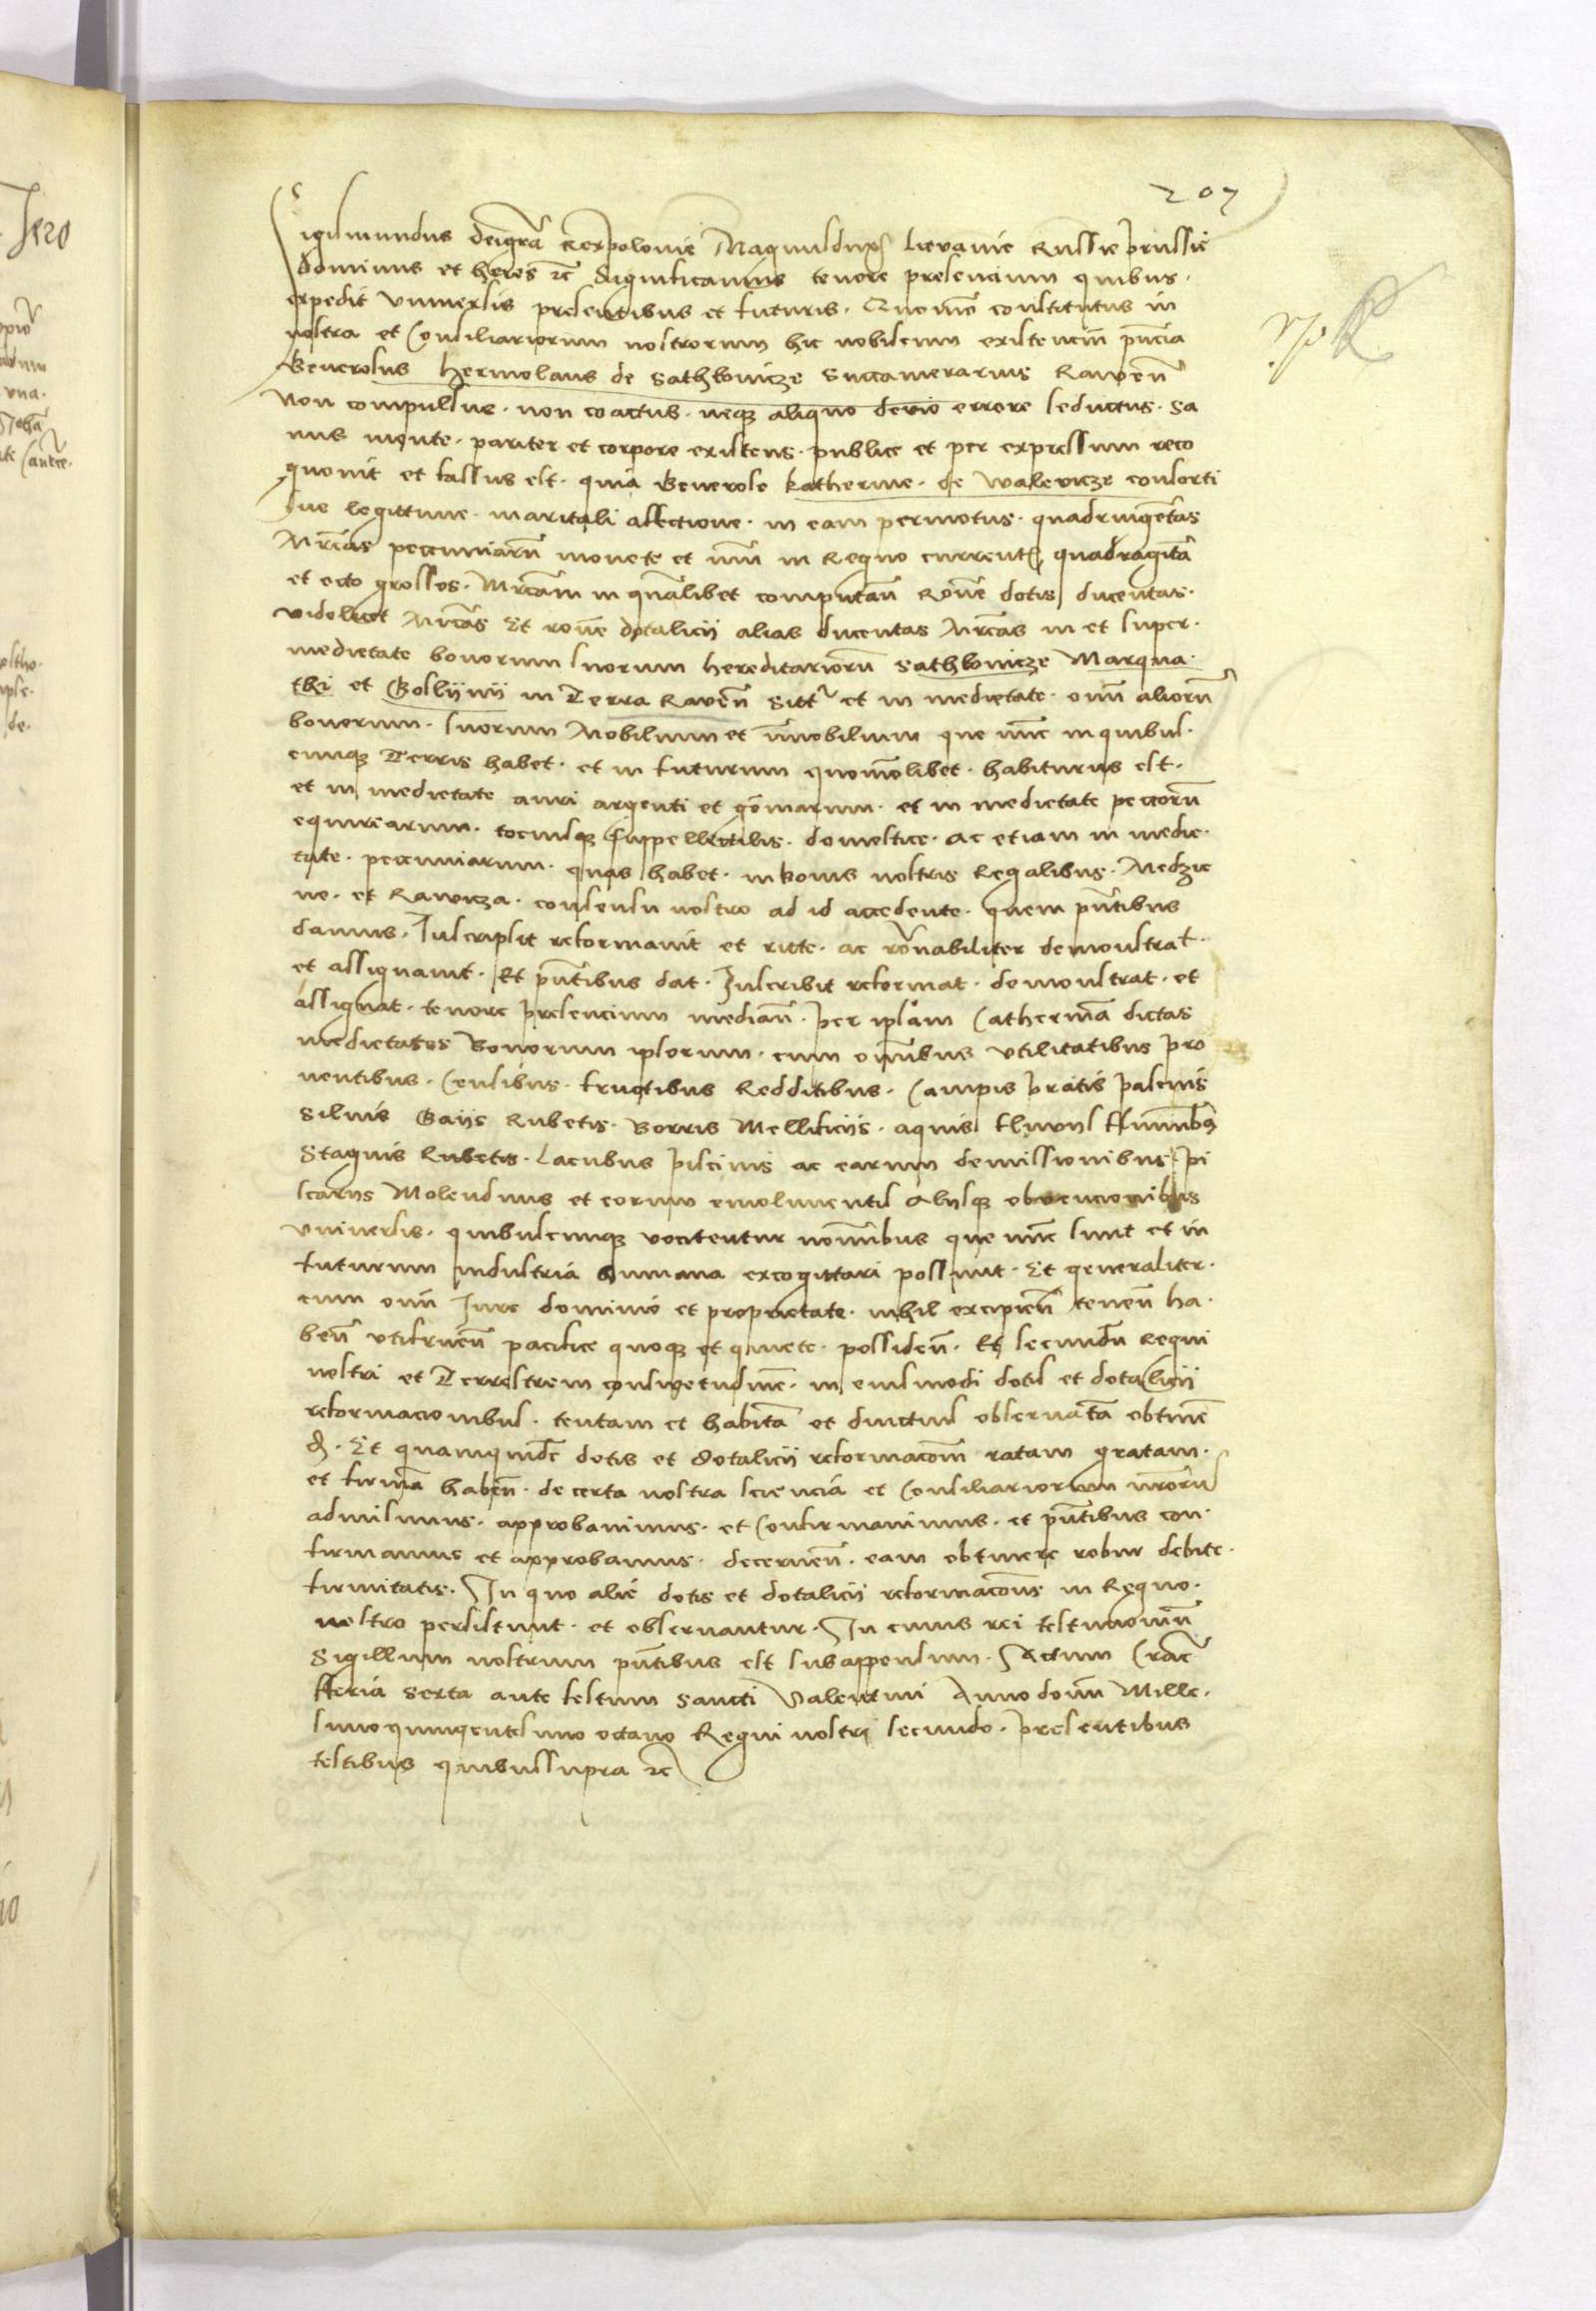 207
Sigismundus deigrã Rexpolonie Magnusdux Litvanie Russie prussie
dominus et heres &c Significamus tenore presencium quibus.
expedit vniuersis presentibus et futuris. Quomõ constitutus in
nostra et Consiliariorum nostrorum hic nobiscum existenciũ pñcia
Generosus Hermolaus de Sathkowicze Succamerarius Raweñ
Non compulsus. non coactus. neqz aliquo devio errore seductus. sa
nus mente. pariter et corpore existens. publice et per expressum reco
gnovit et fassus est. quia Generose Katherine. de Walevicze consorti
sue legittime. maritali affectione. in eam permotus. quadringẽtas
Mrcas pecuniarũ monete et nũi in Regno currentis quadraginta
et octo grossos. Mrcam in quãlibet computañ Rõne dotis ducentas.
videlicet Mrcas Et rõne dotalicii alias ducentas Mrcas in et super.
medietate bonorum suorum hereditariorũ Sathkowicze Marqua
thi et Goslijnij in Terra Raveñ sitt et in medietate. oĩm aliorũ
bonorum. suorum Mobilium et ĩmobilium que nũc in quibus.
cunqz Terris habet. et in futurum quomõlibet. habiturus est.
et in medietate auri argenti et gẽmarum. et in medietate peccorũ
equirearum. tociusqz suppellectilis. domestice. ac etiam in medie.
tate. pecuniarum. quas habet. in bonis nostris Regalibus. Medzie
ne. et Rawicza. consensu nostro ad id accedente. quem pñtibus
damus. Inscripsit reformavit et ritte. ac rõnabiliter demonstrat.
et assignavit. Et pñtibus dat. Inscribit reformat. demonstrat. et
assignat. tenore presencium mediañ. per ipsam Catherinã dictas
medietates Bonorum ipsorum. cum omĩbus vtilitatibus pro
ventibus. Censibus. fructibus Redditibus. Campis pratis pascuis
Silvis Gaijs Rubetis. Borris Mellificiis. aquis fluvijs fluminibqz
Stagnis Rubetis. Lacubus piscinis ac earum demissionibus pi
scariis Molendinis et eorum emolimentis Alijsqz obvencionibus
vniuersis. quibuscunqz vocitentur nomĩibus que nũc sunt et in
futurum industria humana excogittari possunt. Et generaliter.
cum oĩni Jure dominio et proprietate. nihil excipieñ teneñ ha.
beñ vtifrueñ pacifice quoqz et quiete. possideñ. Et secundũ Regni
nostri et Terrestrem consuetudinẽ. in eiusmodi dotis et dotalicii
reformacionibus. tentam et habitã et diuctius observatã obtinẽ
d. Et quamquidẽ dotis et dotalicii reformacõem ratam gratam.
et firmã habeñ. de certa nostra sciencia et Consiliariorum nrõrũ
admisimus. approbavimus. et Confirmavimus. et pñtibus con.
firmamus et approbamus. decerneñ. eam obtinere robur debite.
firmitatis. In quo alie dotis et dotalicii reformacõns in Regno.
nostro persistunt. et observantur. In cuius rei testimoniũ
Sigillum nostrum pñtibus est subappensum. Actum Crac
fferia sexta ante festum Sancti Valentini Anno domi Mille.
simo quingentesimo octavo Regni nostri secundo. presentibus
testibus quibussupra &c